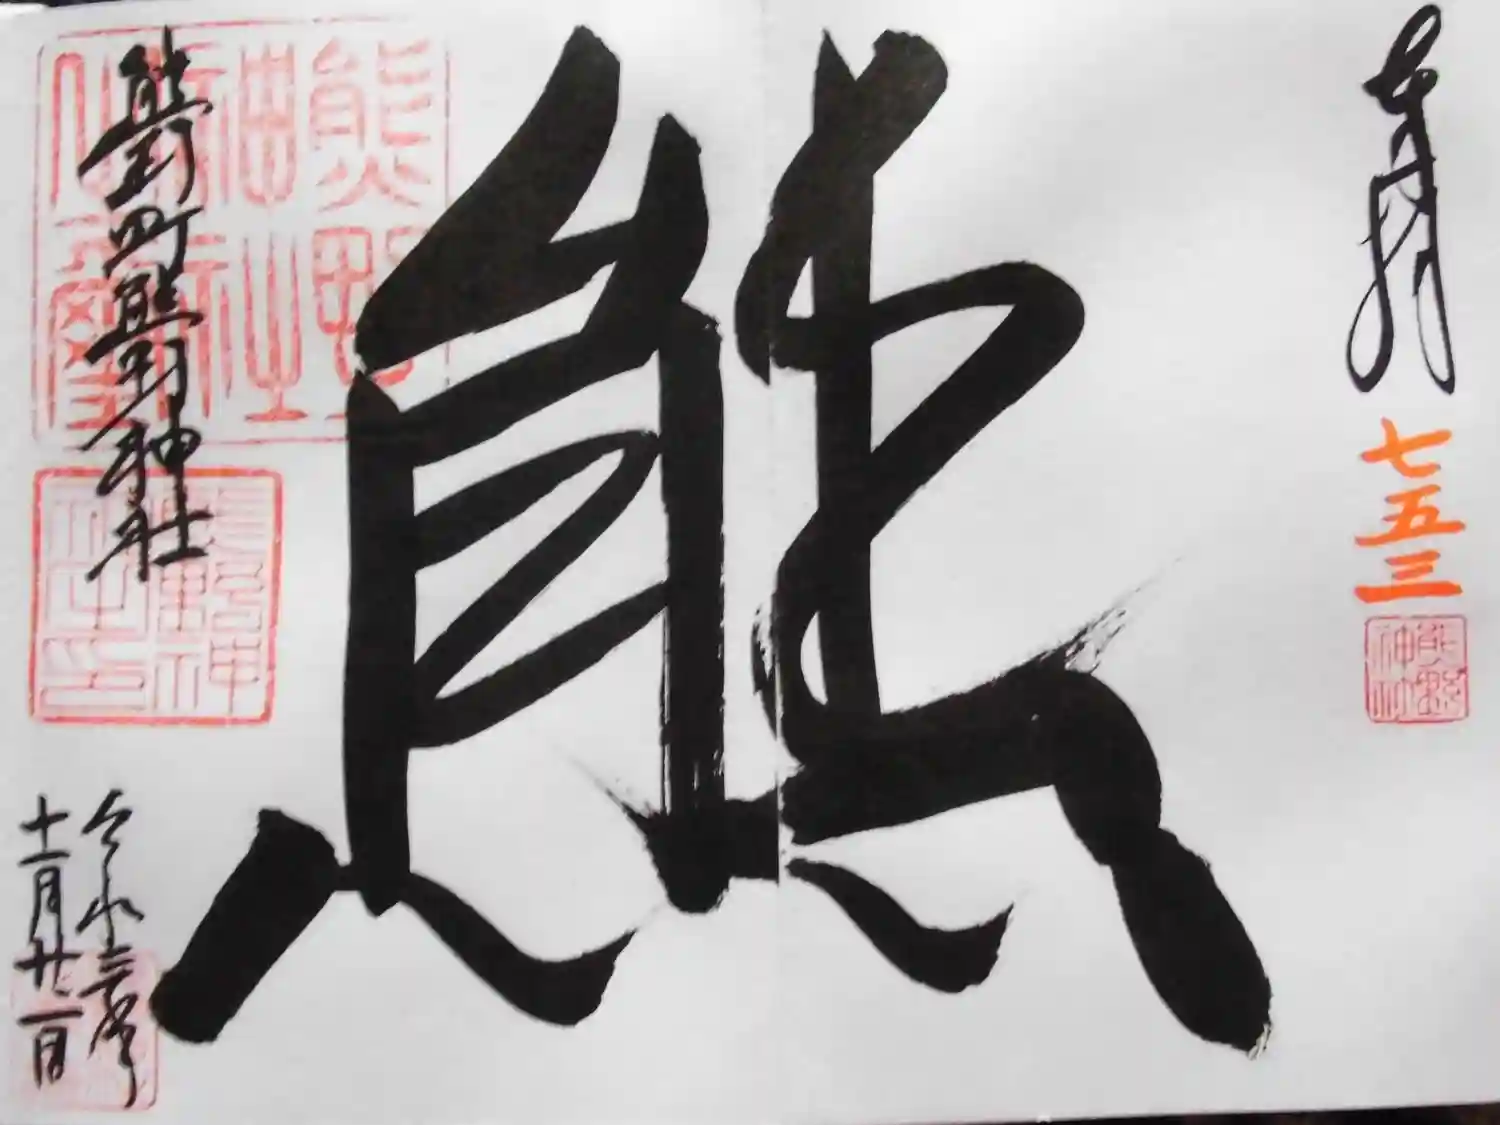 奉拝
七五三
熊野
神社
熊
熊野町熊野神社
熊野神
社之印
令和二年
十一月廿一日